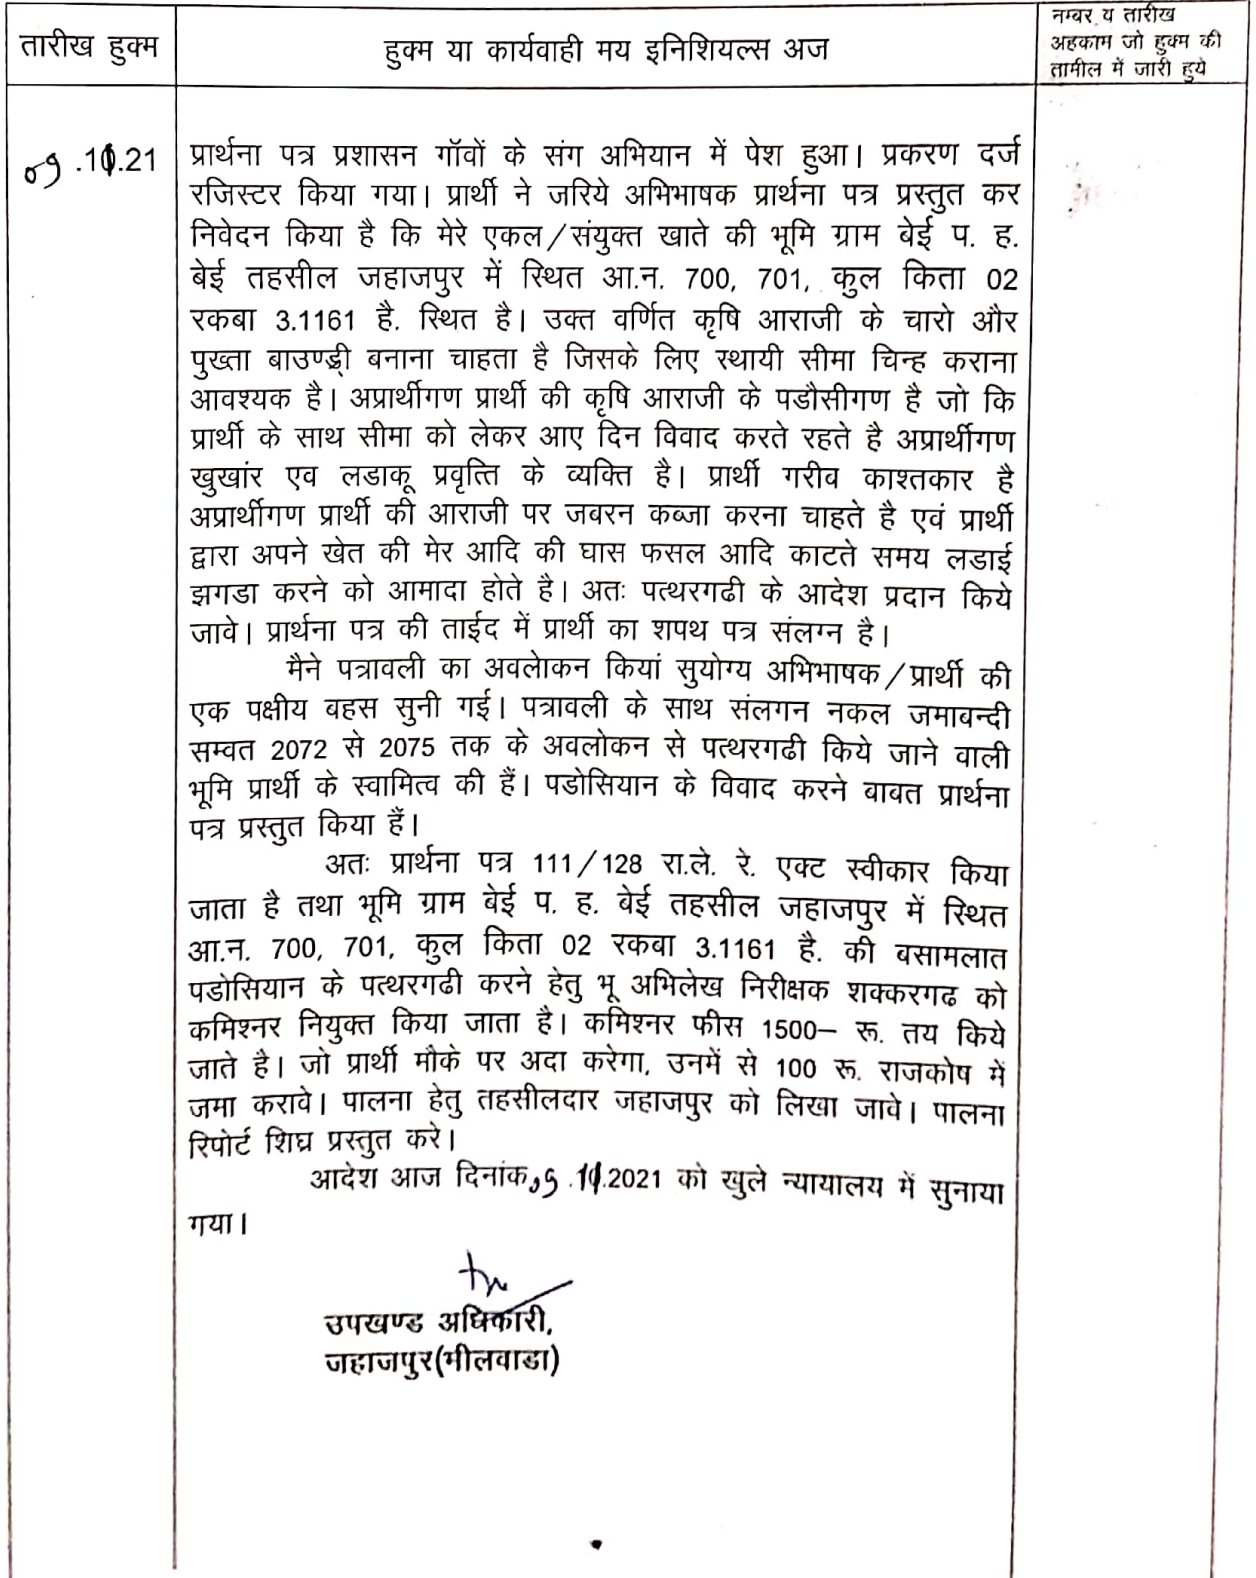 तारीख हुक्म
हुक्म या कार्यवाही मय इनिशियल्स अज
नम्बर व तारीख
अहकाम जो हुक्म की
तामील में जारी हुये
09.11.21
प्रार्थना पत्र प्रशासन गॉवों के संग अभियान में पेश हुआ। प्रकरण दर्ज
रजिस्टर किया गया। प्रार्थी ने जरिये अभिभाषक प्रार्थना पत्र प्रस्तुत कर
निवेदन किया है कि मेरे एकल/संयुक्त खाते की भूमि ग्राम बेई प. ह.
बेई तहसील जहाजपुर में स्थित आ.न. 700, 701, कुल किता 02
रकबा 3.1161 है. स्थित है। उक्त वर्णित कृषि आराजी के चारो और
पुख्ता बाउण्ड्री बनाना चाहता है जिसके लिए स्थायी सीमा चिन्ह कराना
आवश्यक है। अप्रार्थीगण प्रार्थी की कृषि आराजी के पडौसीगण है जो कि
प्रार्थी के साथ सीमा को लेकर आए दिन विवाद करते रहते है अप्रार्थीगण
खुखांर एव लडाकू प्रवृत्ति के व्यक्ति है। प्रार्थी गरीब काश्तकार है
अप्रार्थीगण प्रार्थी की आराजी पर जबरन कब्जा करना चाहते है एवं प्रार्थी
द्वारा अपने खेत की मेर आदि की घास फसल आदि काटते समय लडाई
झगडा करने को आमादा होते है। अतः पत्थरगढी के आदेश प्रदान किये
जावे। प्रार्थना पत्र की ताईद में प्रार्थी का शपथ पत्र संलग्न है।
मैने पत्रावली का अवलोकन कियां सुयोग्य अभिभाषक/प्रार्थी की
एक पक्षीय बहस सुनी गई। पत्रावली के साथ संलगन नकल जमाबन्दी
सम्वत 2072 से 2075 तक के अवलोकन से पत्थरगढी किये जाने वाली
भूमि प्रार्थी के स्वामित्व की हैं। पडोसियान के विवाद करने बाबत प्रार्थना
पत्र प्रस्तुत किया हैं।
अतः प्रार्थना पत्र 111/128 रा.ले. रे. एक्ट स्वीकार किया
जाता है तथा भूमि ग्राम बेई प. ह. बेई तहसील जहाजपुर में स्थित
आ.न. 700, 701, कुल किता 02 रकबा 3.1161 है. की बसामलात
पडोसियान के पत्थरगढी करने हेतु भू अभिलेख निरीक्षक शक्करगढ को
कमिश्नर नियुक्त किया जाता है। कमिश्नर फीस 1500– रू. तय किये
जाते है। जो प्रार्थी मौके पर अदा करेगा, उनमें से 100 रू. राजकोष में
जमा करावे। पालना हेतु तहसीलदार जहाजपुर को लिखा जावे। पालना
रिपोर्ट शिघ्र प्रस्तुत करे।
आदेश आज दिनांक 09.11.2021 को खुले न्यायालय में सुनाया
गया।
उपखण्ड अधिकारी,
जहाजपुर(भीलवाडा)